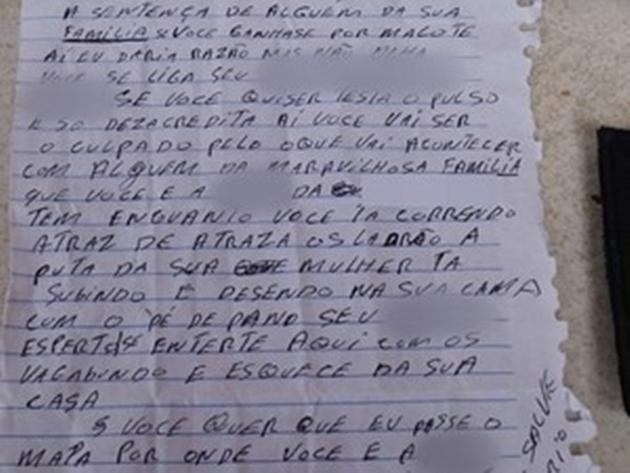 A SENTENÇA DE ALGUEM DA SUA
FAMILIA SE VOCE GANHASE POR MALOTE
AI EU DARIA RAZÃO MAS NÃO
VOCE SE LIGA SEU
SE VOCE QUISER TESTA O PULSO
E SO DEZACREDITA AI VOCE VAI SER
O CULPADO PELO OQUE VAI ACONTECER
COM ALGUEM DA MARAVILHOSA FAMILIA
QUE VOCE E A DA
TEM ENQUANTO VOCE TA CORRENDO
ATRAZ DE ATRAZA OS LADRÃO A
PUTA DA SUA MULHER TA
SUBINDO E DESENDO NA SUA CAMA
COM O PÉ DE PANO SEU
ENTERTE AQUI COM OS
VAGABUNDO E ESQUECE DA SUA
CASA
S VOCE QUER QUE EU PASSE O
MAPA POR ONDE VOCE E A
SALVE